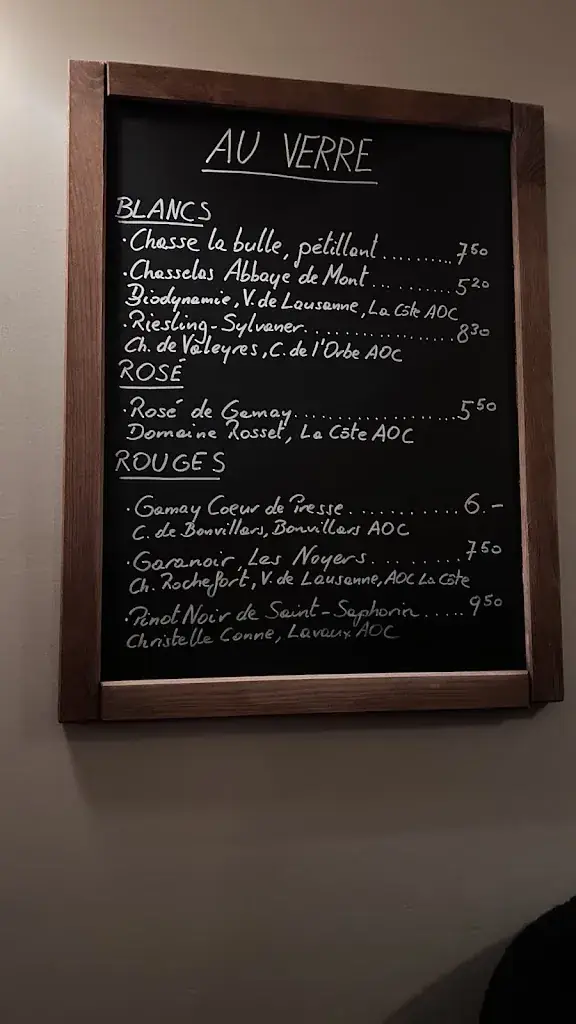 AU VERRE
BLANCS
· Chasse la bulle, pétillant.......... 7 50
· Chasselas Abbaye de Mont........... 5 20
Biodynamie, V. de Lausanne, La Côte AOC
· Riesling-Sylvaner................... 8 30
Ch. de Valeyres, C. de l'Orbe AOC
ROSÉ
· Rosé de Gamay..................... 5 50
Domaine Rosset, La Côte AOC
ROUGES
· Gamay Coeur de Presse........... 6.-
C. de Bonvillars, Bonvillars AOC
· Garanoir, Les Noyers........... 7 50
Ch. Rochefort, V. de Lausanne, AOC La Côte
· Pinot Noir de Saint-Saphorin..... 9 50
Christelle Conne, Lavaux AOC